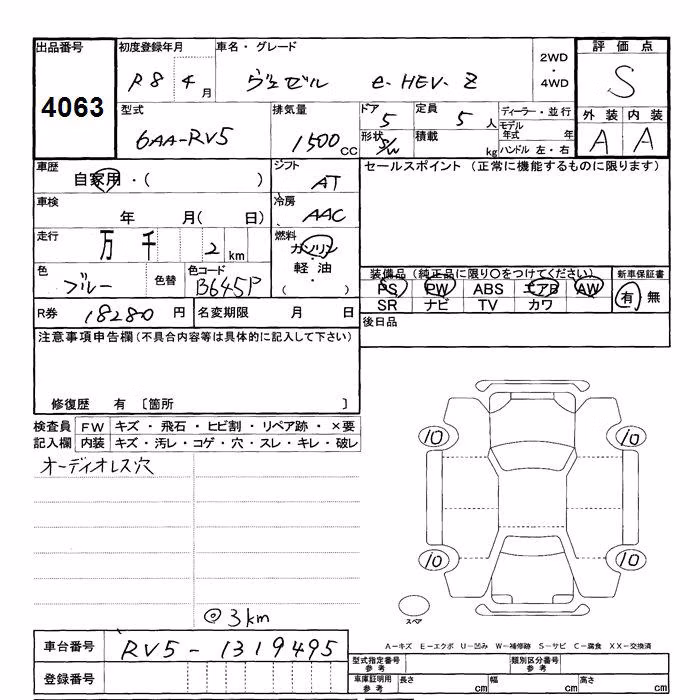 出品番号 初度登録年月 車名・グレード 評価点
4063 R8 4月 ヴェゼル e-HEV-Z 2WD・4WD S
型式 排気量 ドア 定員 ディーラー・並行 外装 内装
6AA-RV5 1500cc 5 5人 モデル年式 年 A A
形状 S/W 積載 kg ハンドル 左・右
車歴 シフト セールスポイント(正常に機能するものに限ります)
自家用・( ) AT
車検 冷房
年 月( 日) AAC
走行 燃料
万 千 2 km ガソリン
色 色替 色コード 軽油 装備品(純正品に限り○をつけてください) 新車保証書
ブルー B645P ・( ) PS PW ABS エアB AW 有 無
SR ナビ TV カワ
R券 18280円 名変期限 月 日 後日品
注意事項申告欄(不具合内容等は具体的に記入して下さい)
修復歴 有 〔箇所 〕
検査員 FW キズ・飛石・ヒビ割・リペア跡・×要
記入欄 内装 キズ・汚レ・コゲ・穴・スレ・キレ・破レ
オーディオレス穴
10 10
10 10
スペア
◎3km
A-キズ E-エクボ U-凹み W-補修跡 S-サビ C-腐食 XX-交換済
車台番号 RV5-1319495 型式指定番号 参考 類別区分番号 参考
登録番号 車庫証明用 参考 長さ cm 幅 cm 高さ cm